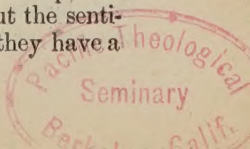 ut the senti-
they have a
Pacific Theological
Seminary
Berkeley, Calif.